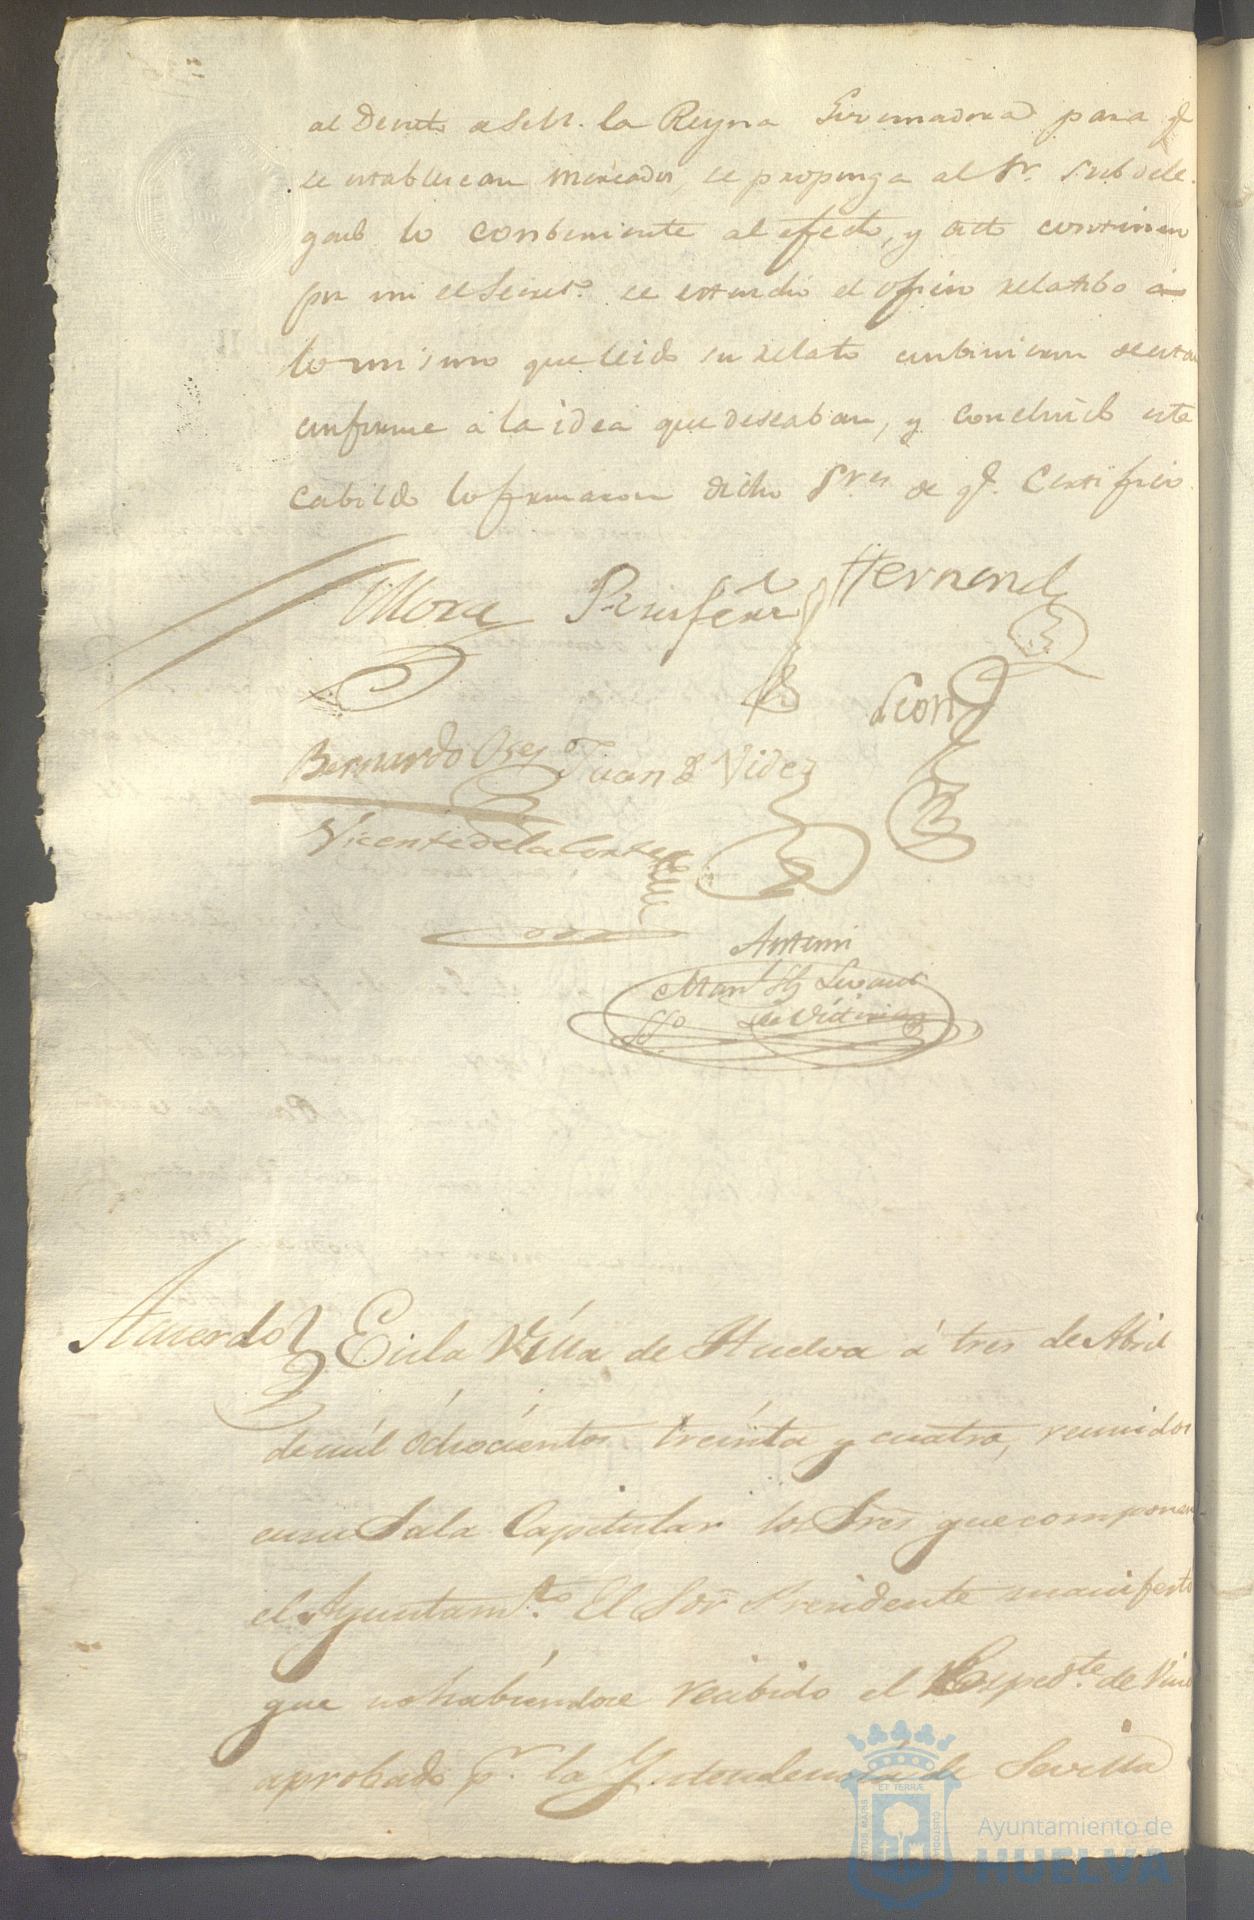 al Decreto de S.M. la Reyna Governadora para q.e
se establescan mercados, se proponga al Sr. Subdele-
gado lo conbeniente al efecto, y acto continuo
por mi el Secret.o se estendio el oficio relatibo á
lo mismo que leido su relato conbinieron de estar
conforme a la idea que deseaban, y concluido este
Cabildo lo firmaron dichos Sres. de q.e Certifico.
Mora Hernand
Leon
Bernardo Juan Videz
Vicente de la Corte
Antemi
Man.l
Acuerdo En la Villa de Huelva á tres de Abril
de mil ochocientos treinta y cuatro, reunidos
en su Sala Capitular los Sres que componen
el Ayuntam.to El Sor Presidente manifesto
que no habiendose recibido el Exped.te de
aprobado p.r la Yntendencia de Sevilla
Ayuntamiento de
HUELVA